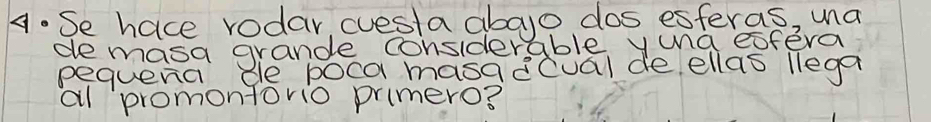 4. Se hace rodar cuesta abajo dos esferas, una
de masa grande considerable y una esféra
pequena de poca masa ¿cual de ellas llega
al promontorio primero?